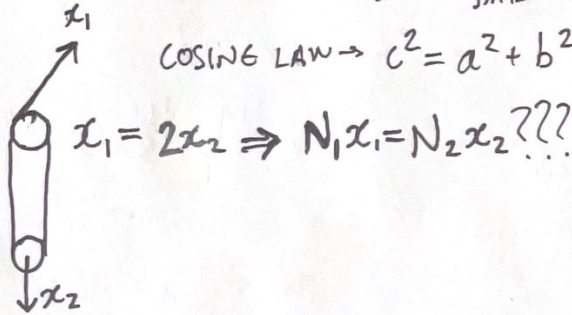 x₁
COSINE LAW → c² = a² + b²
x₁ = 2x₂ ⇒ N₁x₁ = N₂x₂ ???
x₂